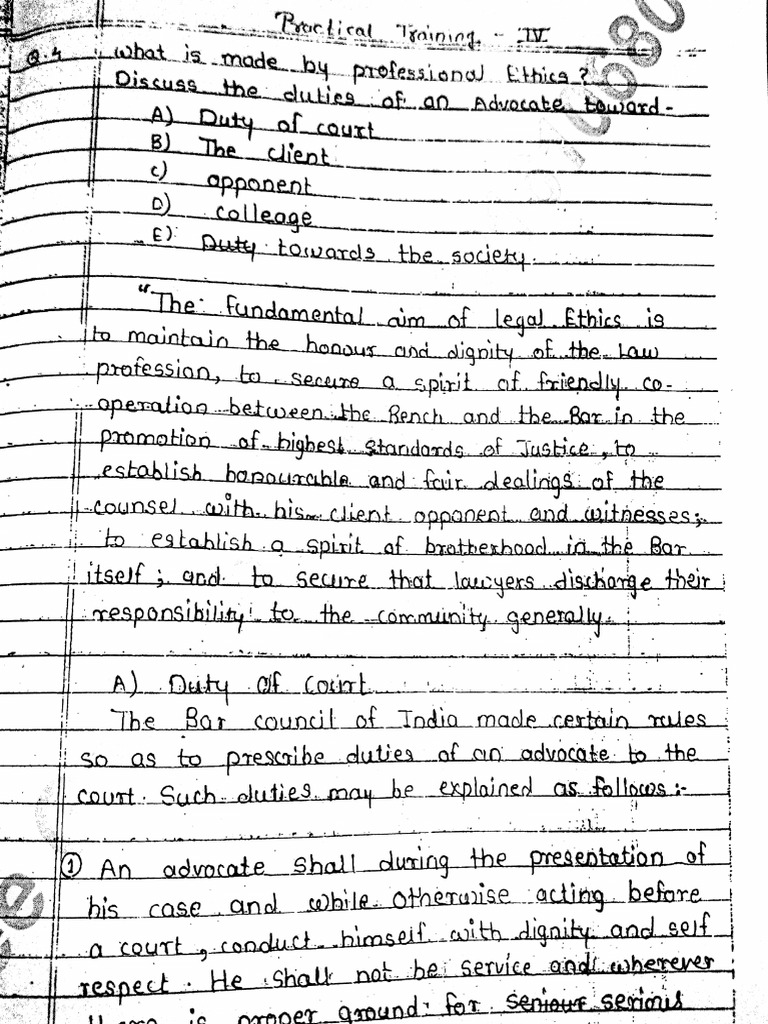 Practical Training - IV
Q.4 what is made by professional Ethics?
Discuss the duties of an Advocate toward -
A) Duty of court
B) The client
C) opponent
D) colleage
E) Duty towards the society.
"The fundamental aim of legal Ethics is
to maintain the honour and dignity of the Law
profession, to secure a spirit of friendly co-
operation between the Bench and the Bar in the
promotion of highest standards of Justice, to
establish honourable and fair dealings of the
counsel with his client opponent and witnesses;
to establish a spirit of brotherhood in the Bar
itself; and to secure that lawyers discharge their
responsibility to the community generally.
A) Duty of court
The Bar council of India made certain rules
so as to prescribe duties of an advocate to the
court. Such duties may be explained as follows:-
① An advocate shall during the presentation of
his case and while otherwise acting before
a court, conduct himself with dignity and self
respect. He shall not be service and wherever
is proper ground for seniour serious